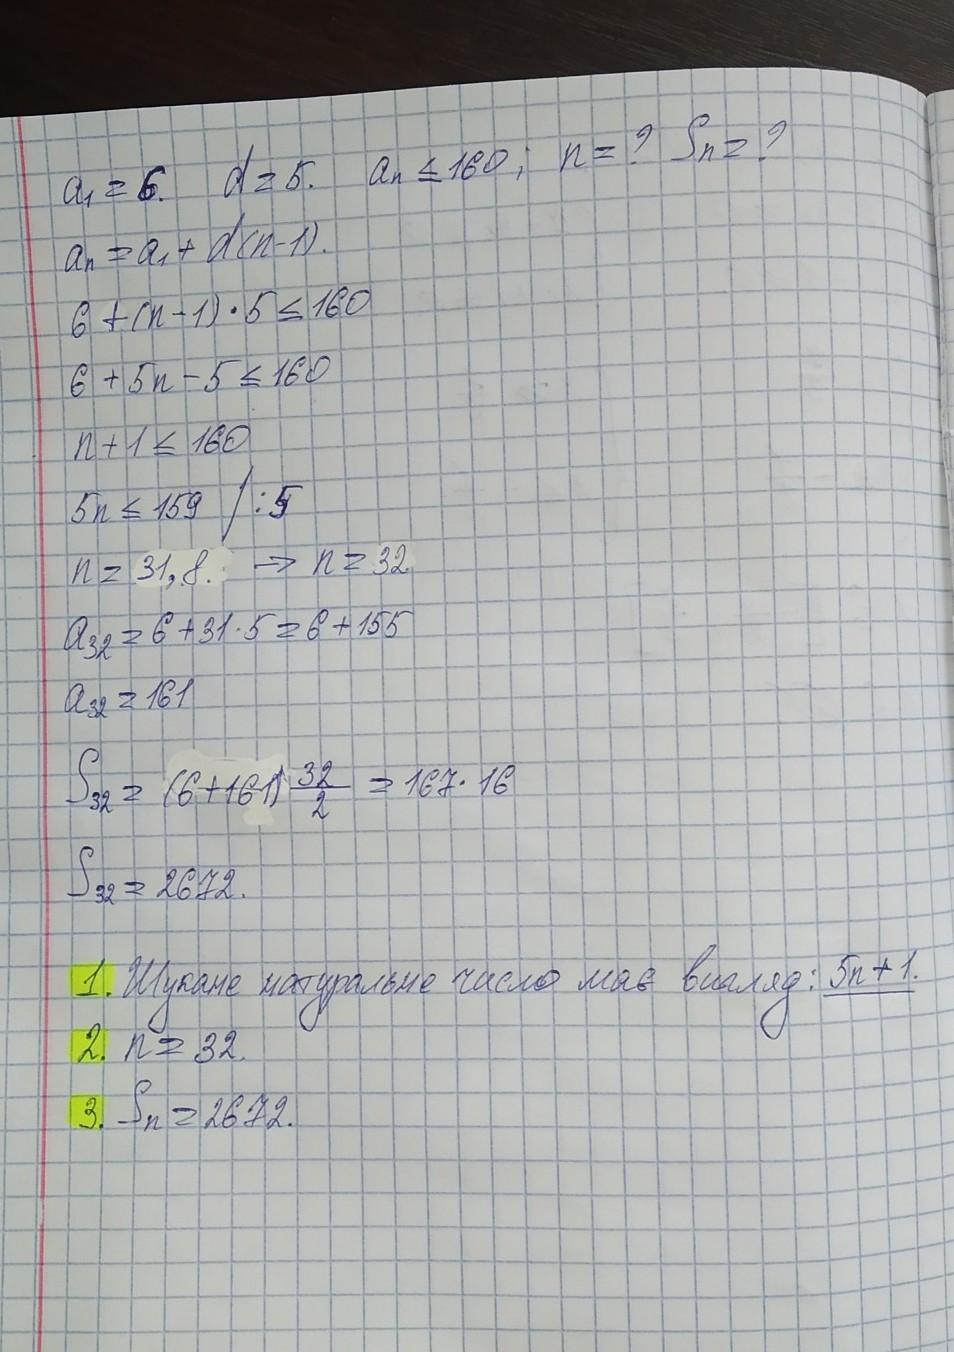 a₁ = 6. d = 5. aₙ ≤ 160; n = ? Sₙ = ?
aₙ = a₁ + d(n-1).
6 + (n-1)·5 ≤ 160
6 + 5n - 5 ≤ 160
n + 1 ≤ 160
5n ≤ 159 /:5
n = 31,8. → n = 32
a₃₂ = 6 + 31·5 = 6 + 155
a₃₂ = 161
S₃₂ = (6+161) 32/2 = 167·16
S₃₂ = 2672.
1. Шукане натуральне число має вигляд: 5n+1.
2. n = 32.
3. Sₙ = 2672.